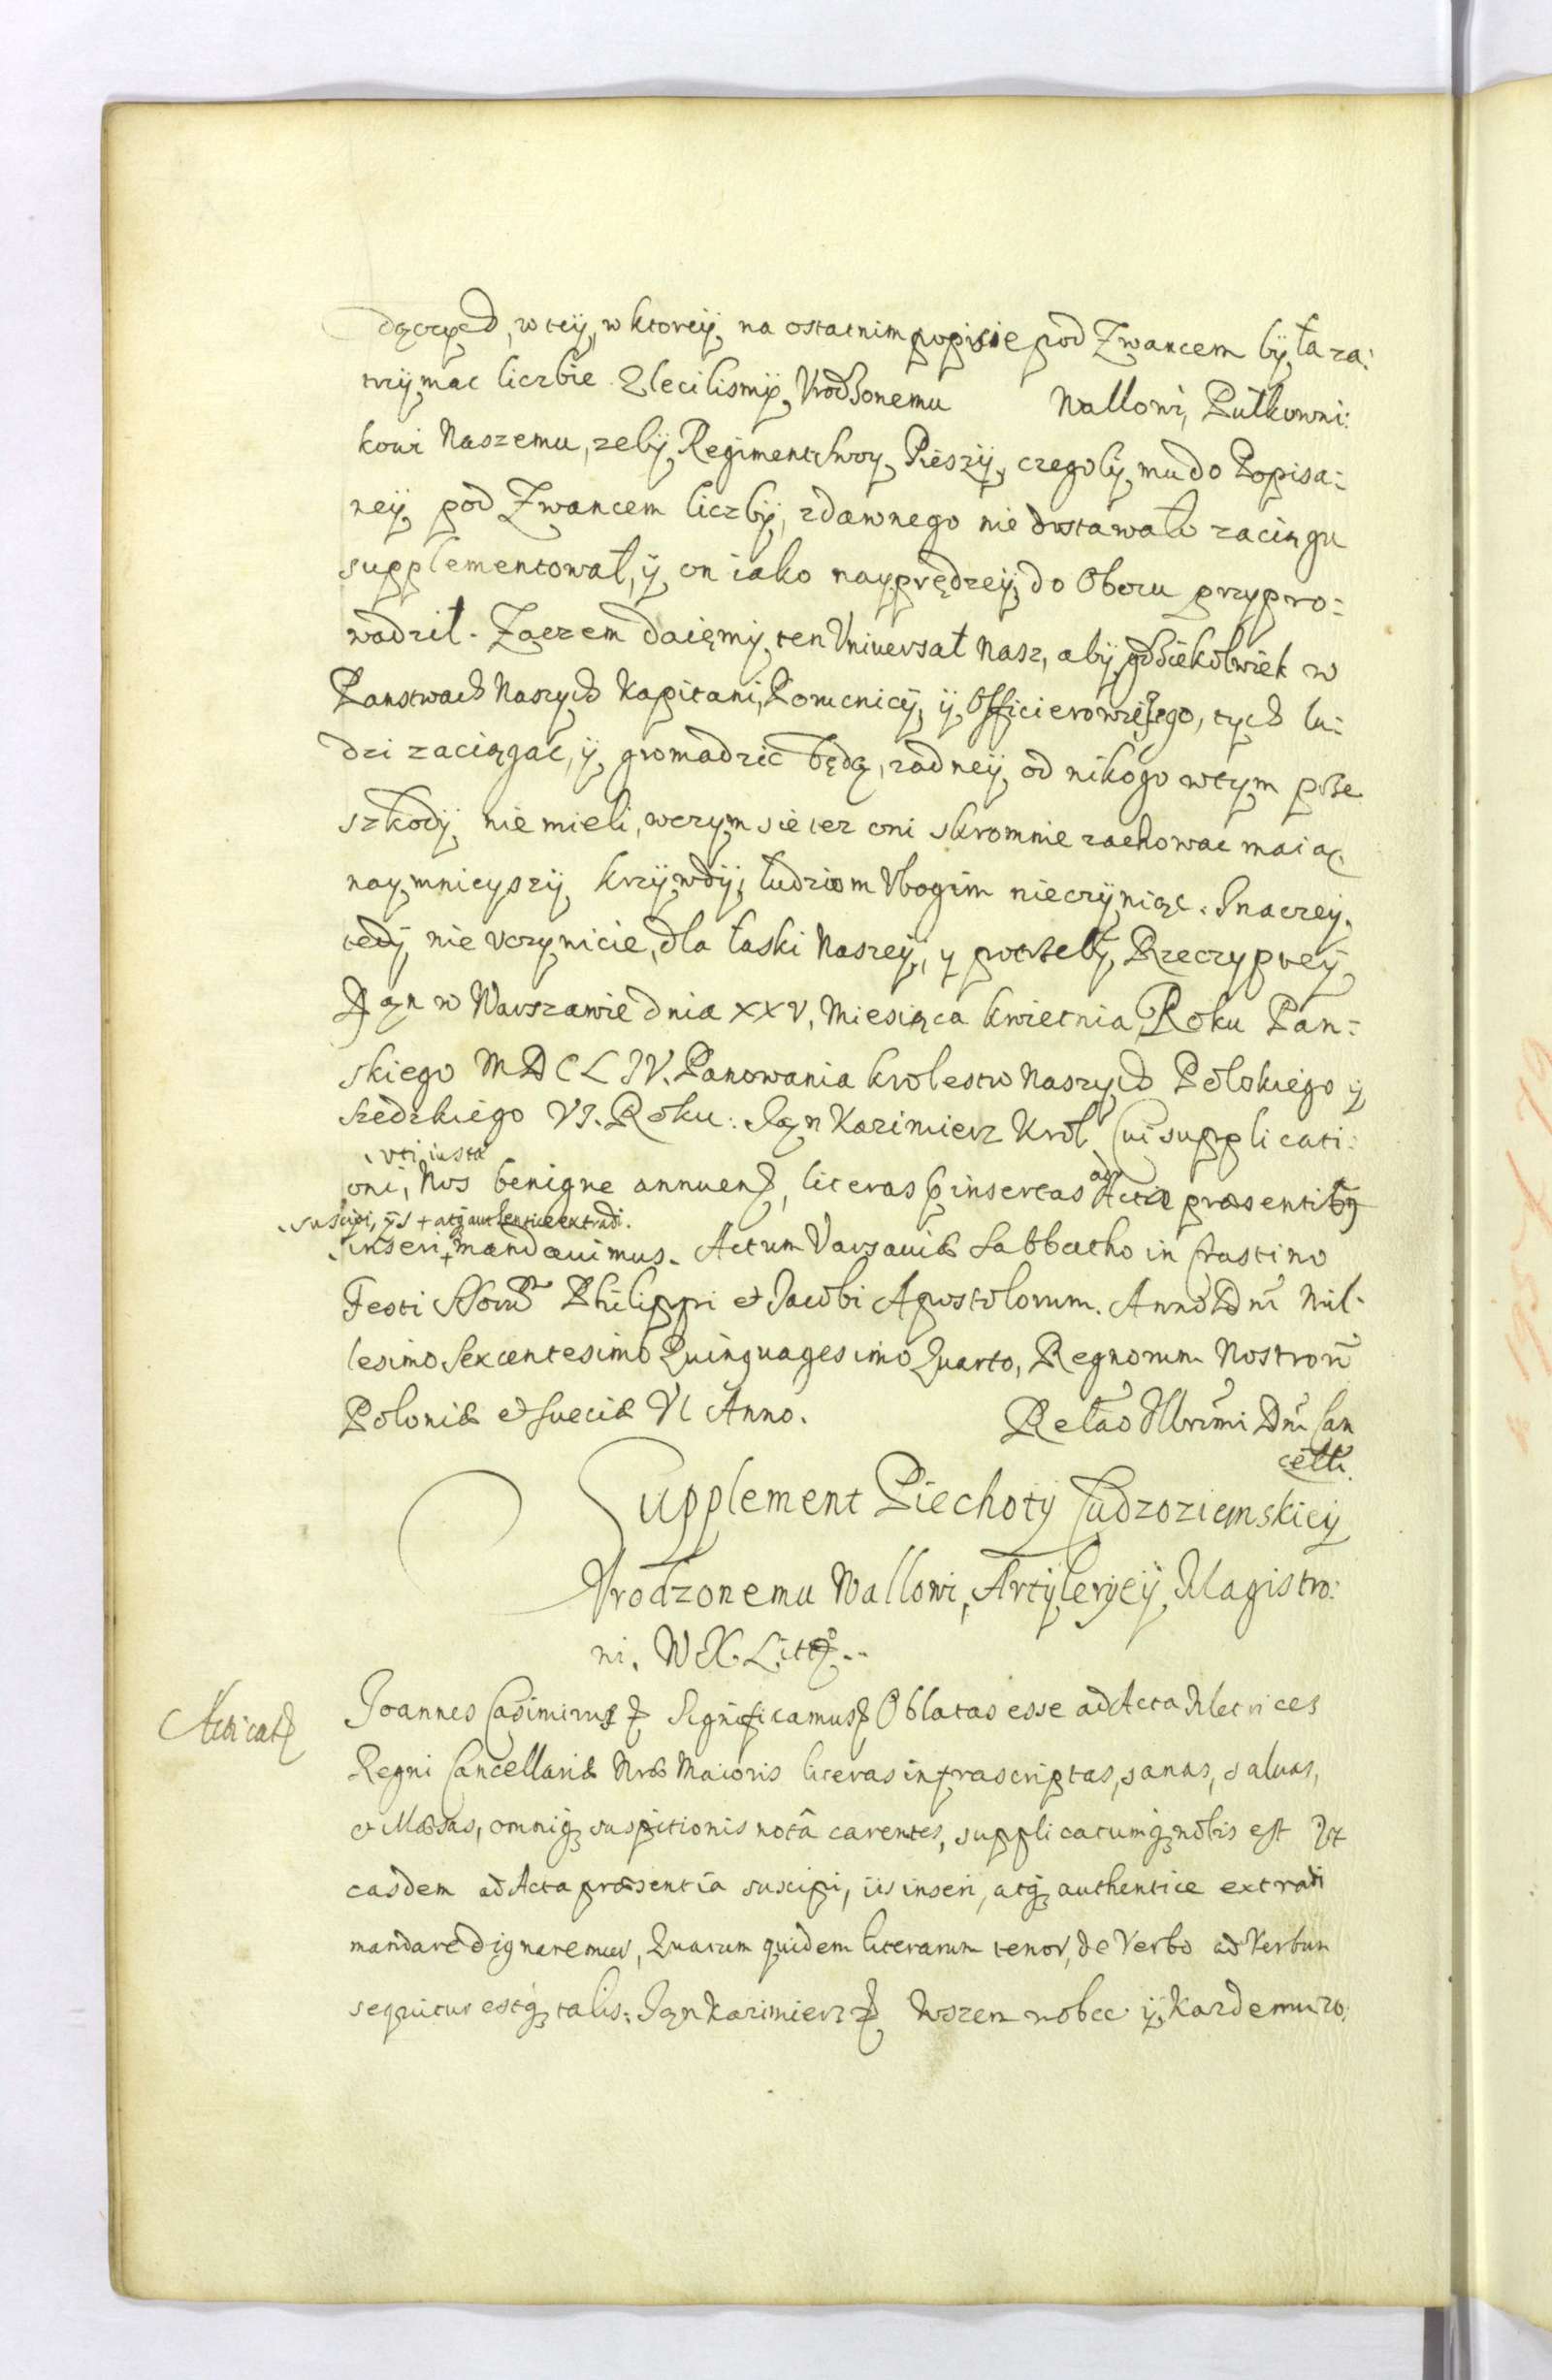 dących, w teÿ, w ktoreÿ na ostatnim popisie pod Zwancem bÿła za:
trzÿmac liczbie Zlecilismÿ Vrodzonemu Wallowi, Pułkowni:
kowi Naszemu, zebÿ Regiment swoy Pieszÿ, czegobÿ mu do Popisa=
neÿ pod Zwancem liczbÿ, zdawnego nie dostawało zaciągu
supplementował, ÿ on iako nayprędzeÿ do Obozu przypro=
wadził. Zaczem daięmy ten Vniuersał Nasz, abÿ gdziekolwiek w
Panstwach Naszych Kapitani, Porucnicÿ, ÿ Officierowie iego, tych lu:
dzi zaciągac, ÿ gromadzic będą, zadneÿ od nikogo wtym prze
szkodÿ nie mieli, wczym sie tez oni skromnie zachowac maiąc
naymnieyszÿ krzÿwdÿ, ludziom Vbogim nieczÿniąc. Inaczey
tedÿ nie vczynicie, dla łaski Naszeÿ, y potrzebÿ Rzeczypteÿ
Dan w Warszawie dnia XXV, Miesiąca kwietnia, Roku Pan=
skiego MDCLIV. Panowania krolestw Naszych Polskiego y
Szedzkiego VI. Roku: Jan Kazimierz Krol Cui supplicati:
vti iusta
oni, Nos benigne annuen, literas insertas ad Acta præsentibq
suscipi, ÿs + atq authentice extradi.
inseri + mandauimus. Actum Varsauiæ Sabbatho in Crastino
Festi SSorum Philippi et Jacobi Apostolorum. Anno Dni Mil=
lesimo Sexcentesimo Quinquagesimo Quarto, Regnorum Nostrorum
Poloniæ et Sueciæ VI Anno. Relao Illrimi Dni Can
celli.
Supplement Piechotÿ Cudzoziemskieÿ
Vrodzonemu Wallowi, Artÿlerÿeÿ Magistro:
ni. W X. Litt..
Acticat
Joannes Casimirus Significamus Oblatas esse ad Acta Metrices
Regni Cancellariæ Nræ Maioris literas infrascriptas, sanas, saluas,
et illæsas, omniq suspitionis notâ carentes, supplicatumq nobis est Vt
easdem ad Acta præsentia suscipi, iis inseri, atq authentice extradi
mandare dignaremur, Quarum quidem literarum tenor, de Verbo ad Verbum
sequitur estq talis: Jan Kazimierz Wszem wobec ÿ Kazdemu zo: